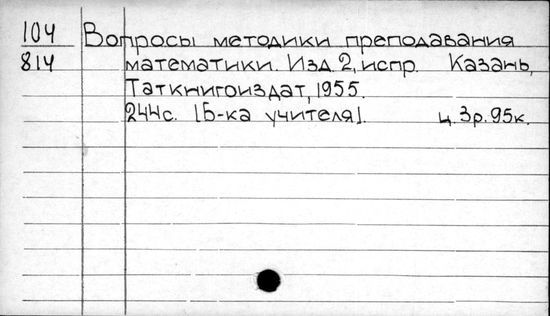 104 Вопросы методики преподавания
814 математики. Изд. 2, испр. Казань,
Таткнигоиздат, 1955.
244с. [Б-ка учителя]. ц. 3р. 95к.